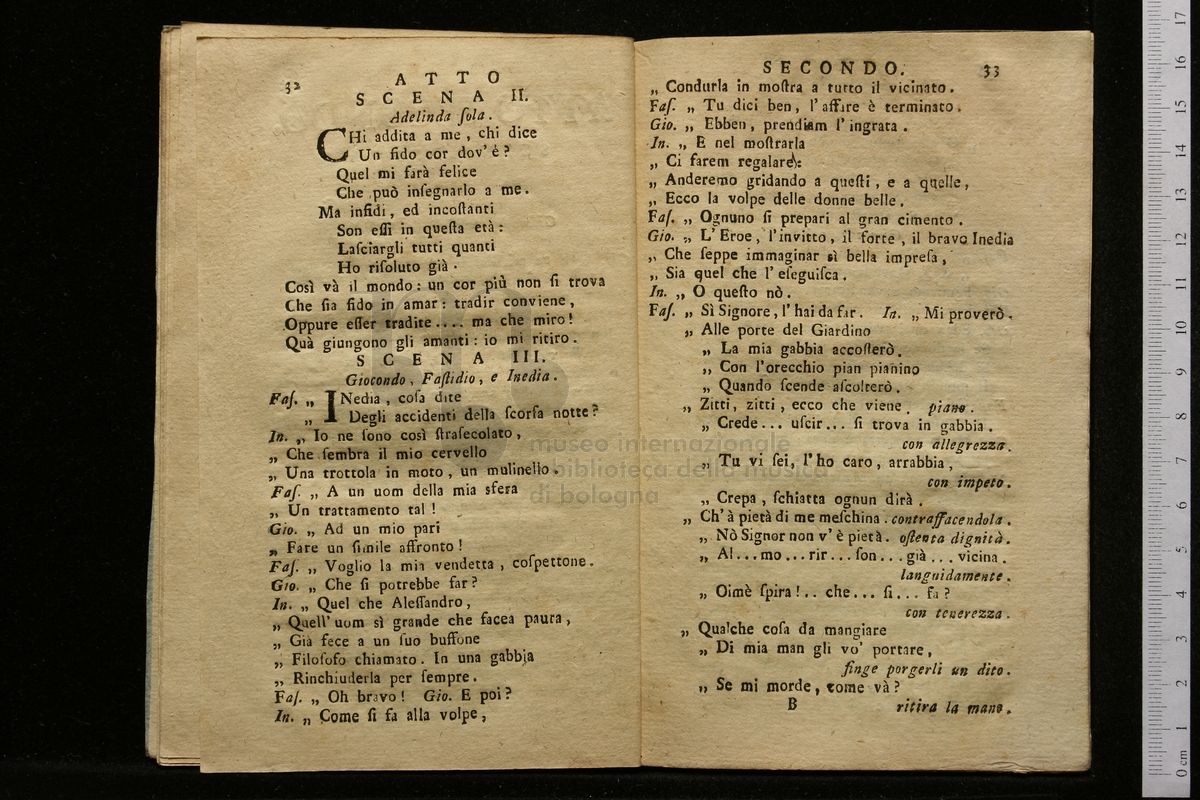 32
ATTO
SCENA II.
Adelinda ſola.
CHi addita a me, chi dice
Un fido cor dov'é?
Quel mi farà felice
Che può inſegnarlo a me.
Ma infidi, ed incoſtanti
Son eſſi in queſta età:
Laſciargli tutti quanti
Ho riſoluto già.
Così và il mondo: un cor più non ſi trova
Che ſia fido in amar: tradir conviene,
Oppure eſſer tradite.... ma che miro!
Quà giungono gli amanti: io mi ritiro.
SCENA III.
Giocondo, Faſtidio, e Inedia.
Faſ. „ INedia, coſa dite
„ Degli accidenti della ſcorſa notte?
In. „ Io ne ſono così ſtraſecolato,
„ Che ſembra il mio cervello
„ Una trottola in moto, un mulinello.
Faſ. „ A un uom della mia sfera
„ Un trattamento tal!
Gio. „ Ad un mio pari
„ Fare un ſimile affronto!
Faſ. „ Voglio la mia vendetta, coſpettone.
Gio. „ Che ſi potrebbe far?
In. „ Quel che Aleſſandro,
„ Quell'uom sì grande che facea paura,
„ Già fece a un ſuo buffone
„ Filoſofo chiamato. In una gabbia
„ Rinchiuderla per ſempre.
Faſ. „ Oh bravo! Gio. E poi?
In. „ Come ſi fa alla volpe,
SECONDO.
33
„ Condurla in moſtra a tutto il vicinato.
Faſ. „ Tu dici ben, l'affare è terminato.
Gio. „ Ebben, prendiam l'ingrata.
In. „ E nel moſtrarla
„ Ci farem regalare:
„ Anderemo gridando a queſti, e a quelle,
„ Ecco la volpe delle donne belle.
Faſ. „ Ognuno ſi prepari al gran cimento.
Gio. „ L'Eroe, l'invitto, il forte, il bravo Inedia
„ Che ſeppe immaginar sì bella impreſa,
„ Sia quel che l'eſeguiſca.
In. „ O queſto nò.
Faſ. „ Sì Signore, l'hai da far. In. „ Mi proverò.
„ Alle porte del Giardino
„ La mia gabbia accoſterò.
„ Con l'orecchio pian pianino
„ Quando ſcende aſcolterò.
„ Zitti, zitti, ecco che viene. piano.
„ Crede... uſcir... ſi trova in gabbia.
con allegrezza.
„ Tu vi ſei, l'ho caro, arrabbia,
con impeto.
„ Crepa, ſchiatta ognun dirà.
„ Ch'à pietà di me meſchina. contraffacendola.
„ Nò Signor non v'è pietà. oſtenta dignità.
„ Al...mo...rir...ſon...già...vicina.
languidamente.
„ Oimè ſpira!.. che... ſi... fa?
con tenerezza.
„ Qualche coſa da mangiare
„ Di mia man gli vo' portare,
finge porgerli un dito.
„ Se mi morde, come và?
B
ritira la mano.
museo internazionale
e biblioteca della musica
di bologna
0 cm 1 2 3 4 5 6 7 8 9 10 11 12 13 14 15 16 17